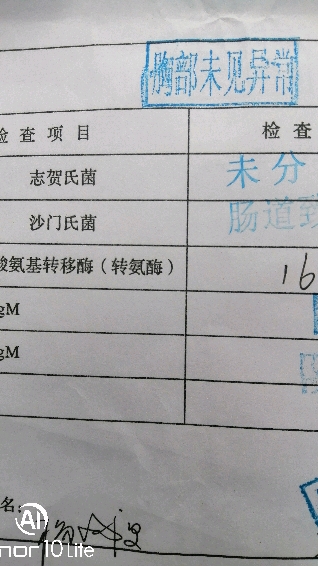 胸部未见异常
检查项目
检查
志贺氏菌
未分
沙门氏菌
肠道致
酸氨基转移酶（转氨酶）
16
gM
gM
名：
AI
nor 10 Lite